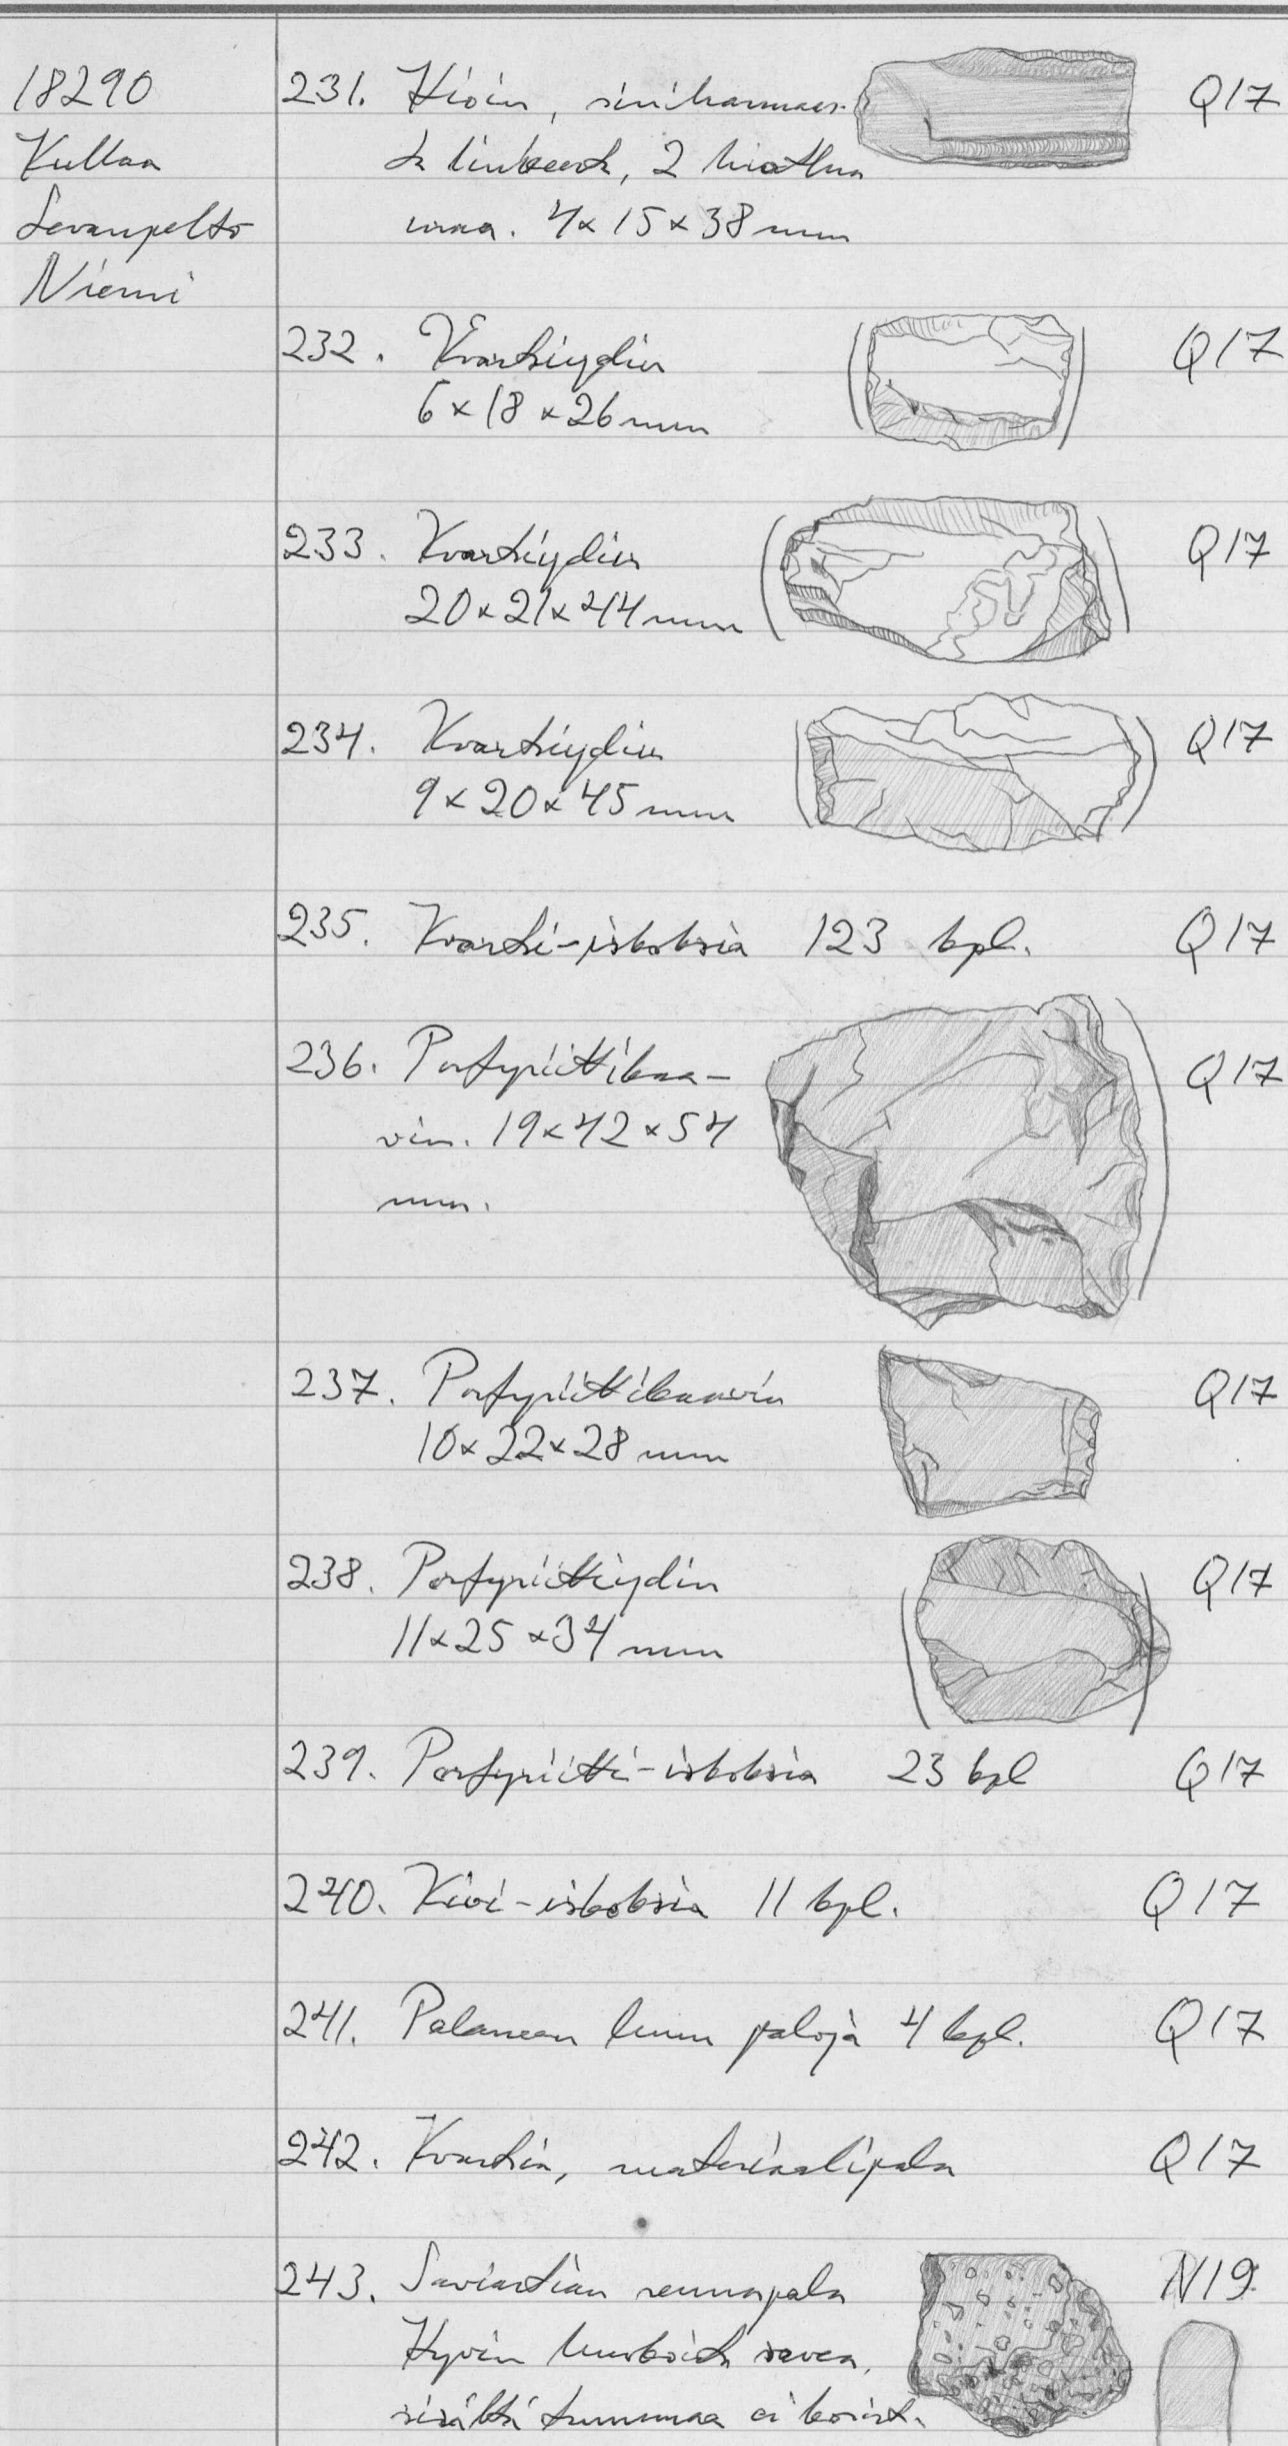 18290
Kullaa
Levanpelto
Niemi
231. Hioin, siniharmaas-
ta kivestä, 2 hiottua
4x15x38 mm
Q17
232. Kvartsiydin
6x18x26 mm
Q17
233. Kvartsiydin
20x21x44 mm
Q17
234. Kvartsiydin
9x20x45 mm
Q17
235. Kvartsi-iskoksia 123 kpl. Q17
236. Porfyriittikaa-
vin. 19x42x54
mm.
Q17
237. Porfyriittikaavin
10x22x28 mm
Q17
238. Porfyriittiydin
11x25x34 mm
Q17
239. Porfyriitti-iskoksia 23 kpl Q17
240. Kivi-iskoksia 11 kpl. Q17
241. Palaneen luun paloja 4 kpl. Q17
242. Kvartsia, materiaalipala Q17
243. Saviastian reunapala N19
Hyvin huokoista savea,
sisältä tummaa ei korist.